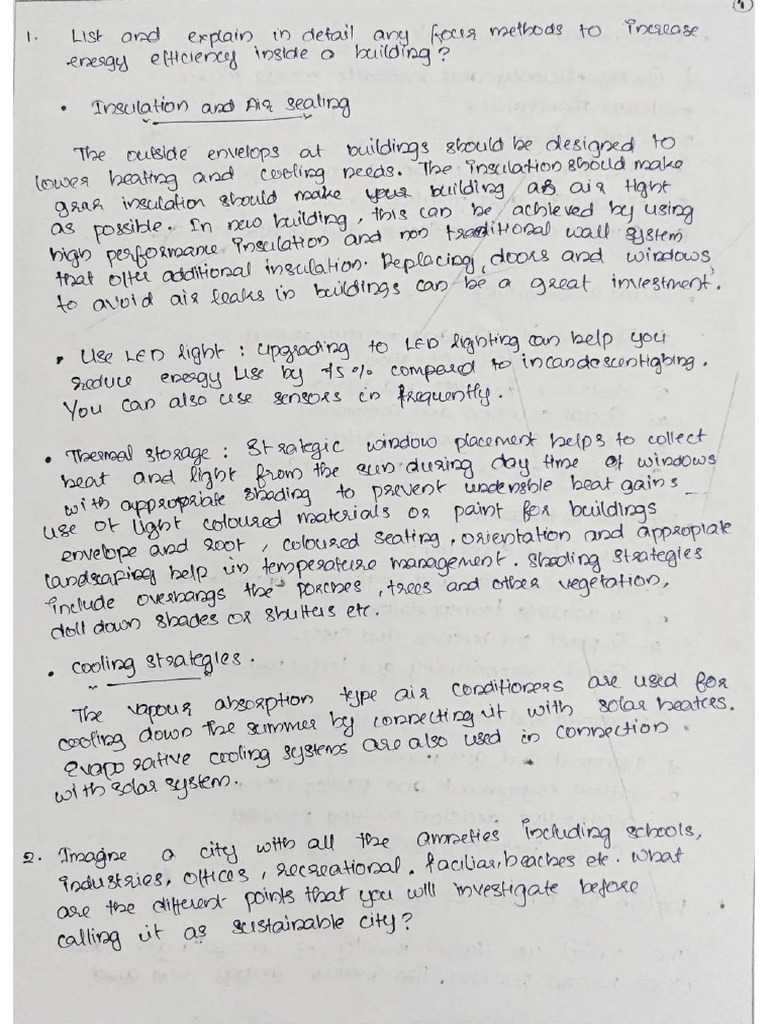 1. List and explain in detail any four methods to increase
energy efficiency inside a building?
• Insulation and Air sealing
The outside envelops at buildings should be designed to
lower heating and cooling needs. The insulation should make
insulation should make your building as air tight
as possible. In new building, this can be achieved by using
high performance insulation and non traditional wall system
that offer additional insulation. Replacing, doors and windows,
to avoid air leaks in buildings can be a great investment.
• Use LED light : upgrading to LED lighting can help you
reduce energy use by 75% compared to incandescent
You can also use sensors in frequently.
• Thermal storage : Strategic window placement helps to collect
heat and light from the sun during day time of windows
with appropriate shading to prevent heat gains
use of light coloured materials or paint for buildings
envelope and roof, coloured seating, orientation and appropriate
landscaping help in temperature management. Shading strategies
include overhangs the porches, trees and other vegetation,
doll down shades or shutters etc.
• cooling strategies.
The vapour absorption type air conditioners are used for
cooling down the summer by connecting it with solar heaters.
Evaporative cooling systems are also used in connection
with solar system.
2. Imagine a city with all the including schools,
industries, offices, recreational, beaches etc. what
are the different points that you will investigate before
calling it as sustainable city?